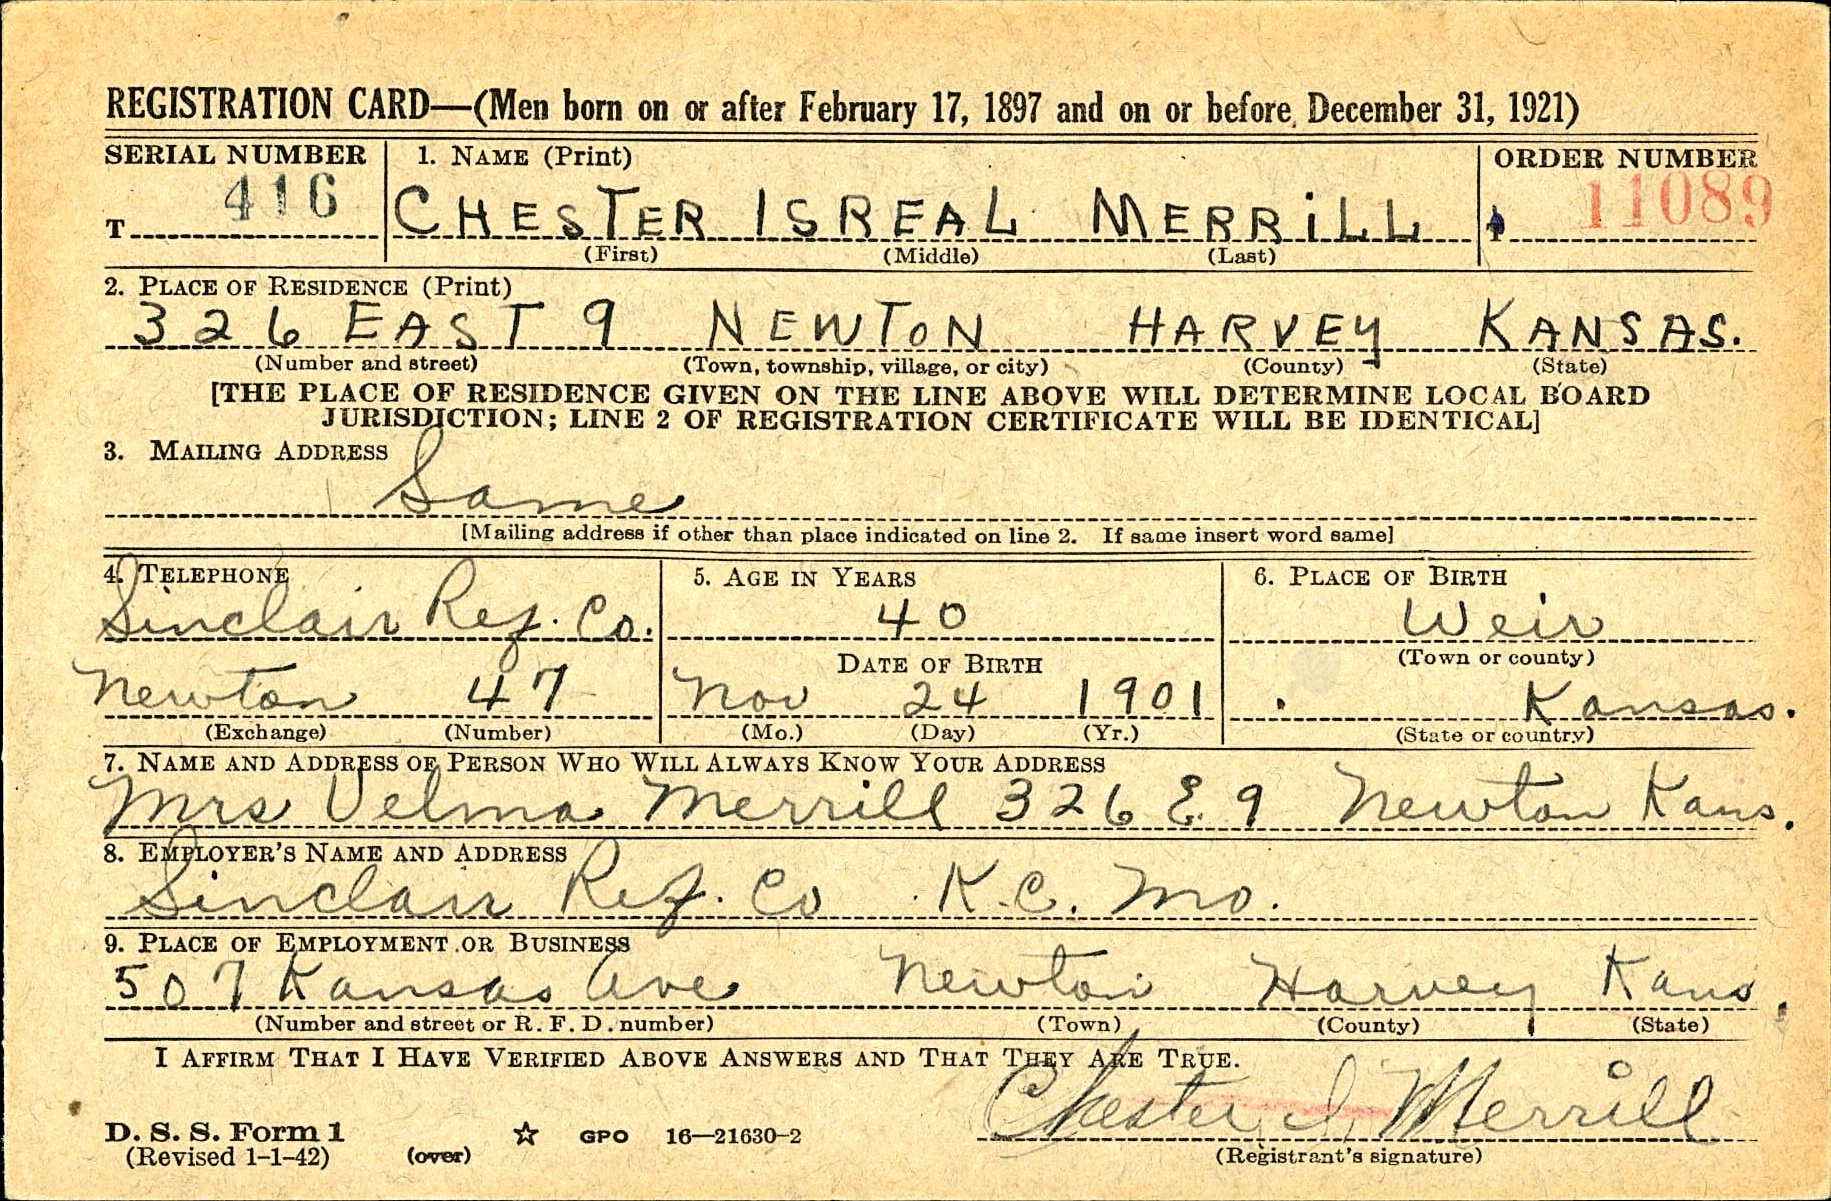 REGISTRATION CARD—(Men born on or after February 17, 1897 and on or before December 31, 1921)
SERIAL NUMBER 1. NAME (Print) ORDER NUMBER
T 416 CHESTER ISREAL MERRILL 11089
(First) (Middle) (Last)
2. PLACE OF RESIDENCE (Print)
326 EAST 9 NEWTON HARVEY KANSAS.
(Number and street) (Town, township, village, or city) (County) (State)
[THE PLACE OF RESIDENCE GIVEN ON THE LINE ABOVE WILL DETERMINE LOCAL BOARD
JURISDICTION; LINE 2 OF REGISTRATION CERTIFICATE WILL BE IDENTICAL]
3. MAILING ADDRESS
Same
[Mailing address if other than place indicated on line 2. If same insert word same]
4. TELEPHONE 5. AGE IN YEARS 6. PLACE OF BIRTH
Sinclair Ref. Co. 40 Weir
DATE OF BIRTH (Town or county)
Newton 47 Nov 24 1901 Kansas.
(Exchange) (Number) (Mo.) (Day) (Yr.) (State or country)
7. NAME AND ADDRESS OF PERSON WHO WILL ALWAYS KNOW YOUR ADDRESS
Mrs Velma Merrill 326 E. 9 Newton Kans.
8. EMPLOYER'S NAME AND ADDRESS
Sinclair Ref. Co K.C. Mo.
9. PLACE OF EMPLOYMENT OR BUSINESS
507 Kansas Ave Newton Harvey Kans.
(Number and street or R. F. D. number) (Town) (County) (State)
I AFFIRM THAT I HAVE VERIFIED ABOVE ANSWERS AND THAT THEY ARE TRUE.
Chester I. Merrill
D. S. S. Form 1
(Revised 1-1-42) (over) ☆ GPO 16—21630-2 (Registrant's signature)